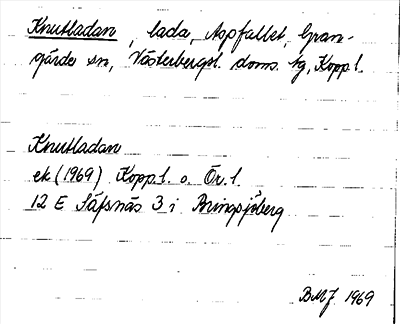 Knutladan, lada, Aspfallet, Gran-
gärde sn, Västerbergsl. doms. tg, Kopp.l.
Knutladan
ek (1969) Kopp.l. o. Ör.l.
12 E Säfsnäs 3 i Bringsjöberg
BMJ 1969